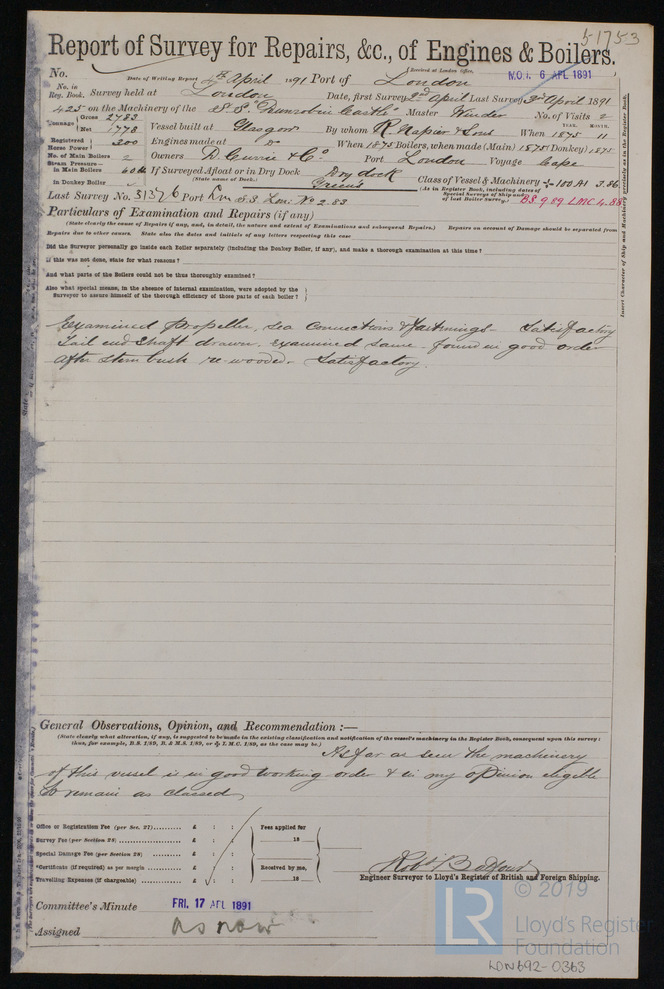 51753
Report of Survey for Repairs, &c., of Engines & Boilers.
(Received at London Office,
No. Date of Writing Report 4th April 1891 Port of London MON. 6 APL 1891
No. in Reg. Book. Survey held at London Date, first Survey 2nd April Last Survey 3rd April 1891
425 on the Machinery of the S.S. "Dunrobin Castle" Master Winder No. of Visits 2
Tonnage Gross 2783 Net 1778 Vessel built at Glasgow By whom R Napier & Sons When YEAR. 1875 MONTH. 11
Registered Horse Power 300 Engines made at Do When 1875 Boilers, when made (Main) 1875 (Donkey) 1875
No. of Main Boilers 2 Owners D. Currie & Co. Port London Voyage Cape
Steam Pressure in Main Boilers 60 lb If Surveyed Afloat or in Dry Dock Dry dock Class of Vessel & Machinery 100 A1 3.86
in Donkey Boiler (State name of Dock.) Green's (As in Register Book, including dates of Special Surveys of Ship and of last Boiler Survey) B.S 9.89 LMC 4.88
Last Survey No. 31376 Port Lon S.S. Lon: No 2.83
Particulars of Examination and Repairs (if any)
(State clearly the cause of Repairs if any, and, in detail, the nature and extent of Examinations and subsequent Repairs.) Repairs on account of Damage should be separated from
Repairs due to other causes. State also the dates and initials of any letters respecting this case
Did the Surveyor personally go inside each Boiler separately (including the Donkey Boiler, if any), and make a thorough examination at this time?
If this was not done, state for what reasons?
And what parts of the Boilers could not be thus thoroughly examined?
Also what special means, in the absence of internal examination, were adopted by the
Surveyor to assure himself of the thorough efficiency of those parts of each boiler?
Insert Character of Ship and Machinery precisely as in the Register Book.
Examined propeller, sea connections & fastenings - Satisfactory
Tail end shaft drawn - examined same - found in good order
After stern bush re-wooded. Satisfactory.
General Observations, Opinion, and Recommendation:—
(State clearly what alteration, if any, is suggested to be made in the existing classification and notification of the vessel's machinery in the Register Book, consequent upon this survey:
thus, for example, B.S. 1/89, B. & M.S. 1/89, or L.M.C. 1/89, as the case may be.)
As far as seen the machinery
of this vessel is in good working order & in my opinion eligible
to remain as classed
Office or Registration Fee (per Sec. 27) £ : : Fees applied for
Survey Fee (per Section 28) £ : : 18
Special Damage Fee (per Section 28) £ : :
*Certificate (if required) as per margin £ : : Received by me,
Travelling Expenses (if chargeable) £ : : 18
Engineer Surveyor to Lloyd's Register of British and Foreign Shipping.
Committee's Minute FRI. 17 APL 1891
Assigned As now
© 2019
LR
Lloyd's Register
Foundation
LON692-0363